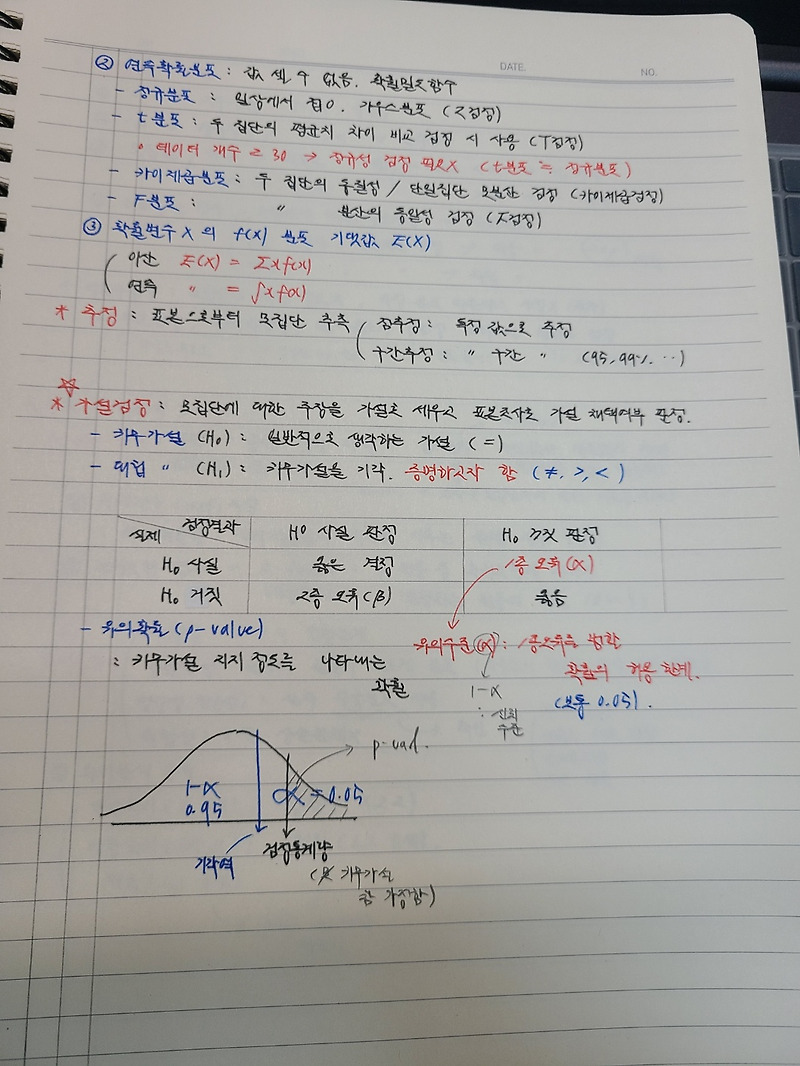 DATE.
NO.
② 연속확률분포 : 값 셀 수 없음. 확률밀도함수
- 정규분포 : 일상에서 접o. 가우스분포 (Z검정)
- t분포 : 두 집단의 평균치 차이 비교 검정 시 사용 (T검정)
o 데이터 개수 ≥ 30 → 정규성 검정 필요X (t분포 ≒ 정규분포)
- 카이제곱분포 : 두 집단의 동질성 / 단일집단 모분산 검정 (카이제곱검정)
- F분포 : " 분산의 동일성 검정 (F검정)
③ 확률변수 X 의 f(x) 분포 기댓값 E(X)
이산 E(X) = Σxf(x)
연속 " = ∫xf(x)
* 추정 : 표본으로부터 모집단 추측
점추정 : 특정 값으로 추정
구간추정 : " 구간 " (95, 99% ...)
* 가설검정 : 모집단에 대한 주장을 가설로 세우고 표본조사로 가설 채택여부 판정.
- 귀무가설 (H₀) : 일반적으로 생각하는 가설 (=)
- 대립 " (H₁) : 귀무가설을 기각. 증명하고자 함 (≠, >, <)
실제 검정결과 H₀ 사실 판정 H₀ 거짓 판정
H₀ 사실 옳은 결정 1종 오류(α)
H₀ 거짓 2종 오류(β) 옳음
- 유의확률 (p-value)
: 귀무가설 지지 정도를 나타내는
확률
유의수준(α) : 1종오류를 범할
확률의 허용 한계.
(보통 0.05).
1-α
: 신뢰
수준
p-val.
1-α
0.95
α = 0.05
기각역
검정통계량
( 귀무가설
참 가정함)